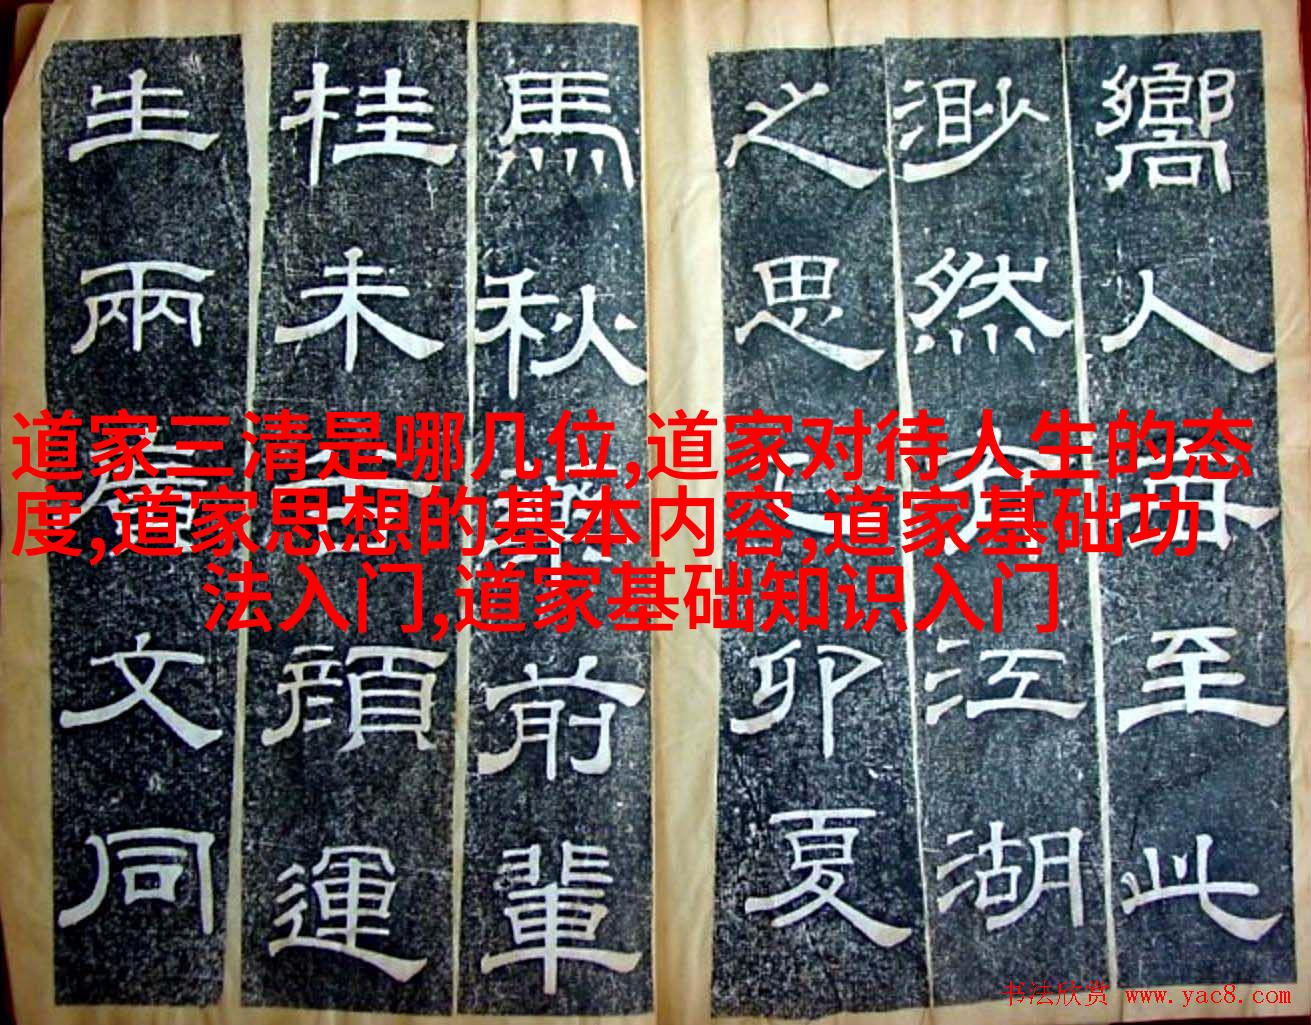 嚮人每至此
渺然有江湖
之思乙卯夏
馬秋藥前輩
桂未谷顏運
生兩廣文同
道家三清是哪几位,道家对待人生的态
度,道家思想的基本内容,道家基础功
法入门,道家基础知识入门
书法欣赏 www.yac8.com